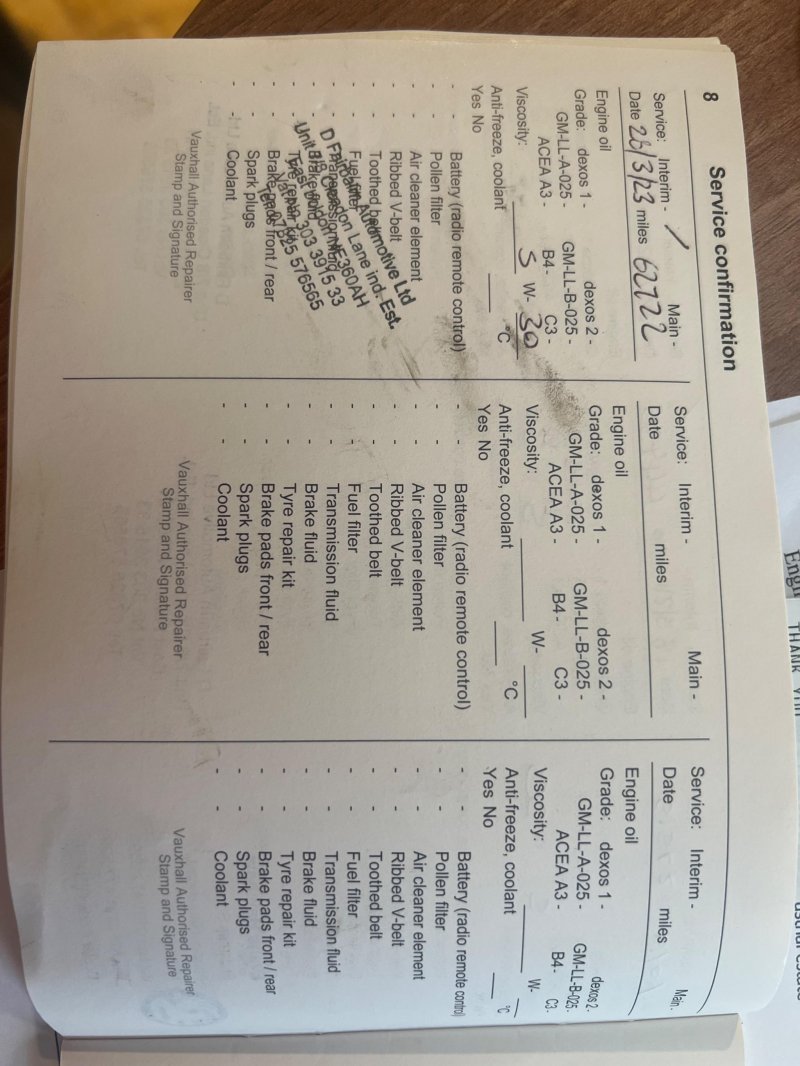 8
Service confirmation
Service: Interim - / Main -
Date 23/3/23 miles 62722
Engine oil
Grade: dexos 1 - dexos 2 -
GM-LL-A-025 - GM-LL-B-025 -
ACEA A3 - B4 - C3 -
Viscosity: 5 W- 30
Anti-freeze, coolant °C
Yes No
- - Battery (radio remote control)
- - Pollen filter
- - Air cleaner element
- - Ribbed V-belt
- - Toothed belt
- - Fuel filter
- - Transmission fluid
- - Brake fluid
- - Tyre repair kit
- - Brake pads front / rear
- - Spark plugs
- - Coolant
D Fairbairn Automotive Ltd
Unit Lane ind. Est.
East Boldon NE360AH
303 3915 33
576565
Vauxhall Authorised Repairer
Stamp and Signature
Service: Interim - Main -
Date miles
Engine oil
Grade: dexos 1 - dexos 2 -
GM-LL-A-025 - GM-LL-B-025 -
ACEA A3 - B4 - C3 -
Viscosity: W-
Anti-freeze, coolant °C
Yes No
- - Battery (radio remote control)
- - Pollen filter
- - Air cleaner element
- - Ribbed V-belt
- - Toothed belt
- - Fuel filter
- - Transmission fluid
- - Brake fluid
- - Tyre repair kit
- - Brake pads front / rear
- - Spark plugs
- - Coolant
Vauxhall Authorised Repairer
Stamp and Signature
Service: Interim - Main -
Date miles
Engine oil
Grade: dexos 1 - dexos 2 -
GM-LL-A-025 - GM-LL-B-025 -
ACEA A3 - B4 - C3 -
Viscosity: W-
Anti-freeze, coolant °C
Yes No
- - Battery (radio remote control)
- - Pollen filter
- - Air cleaner element
- - Ribbed V-belt
- - Toothed belt
- - Fuel filter
- - Transmission fluid
- - Brake fluid
- - Tyre repair kit
- - Brake pads front / rear
- - Spark plugs
- - Coolant
Vauxhall Authorised Repairer
Stamp and Signature
THANK